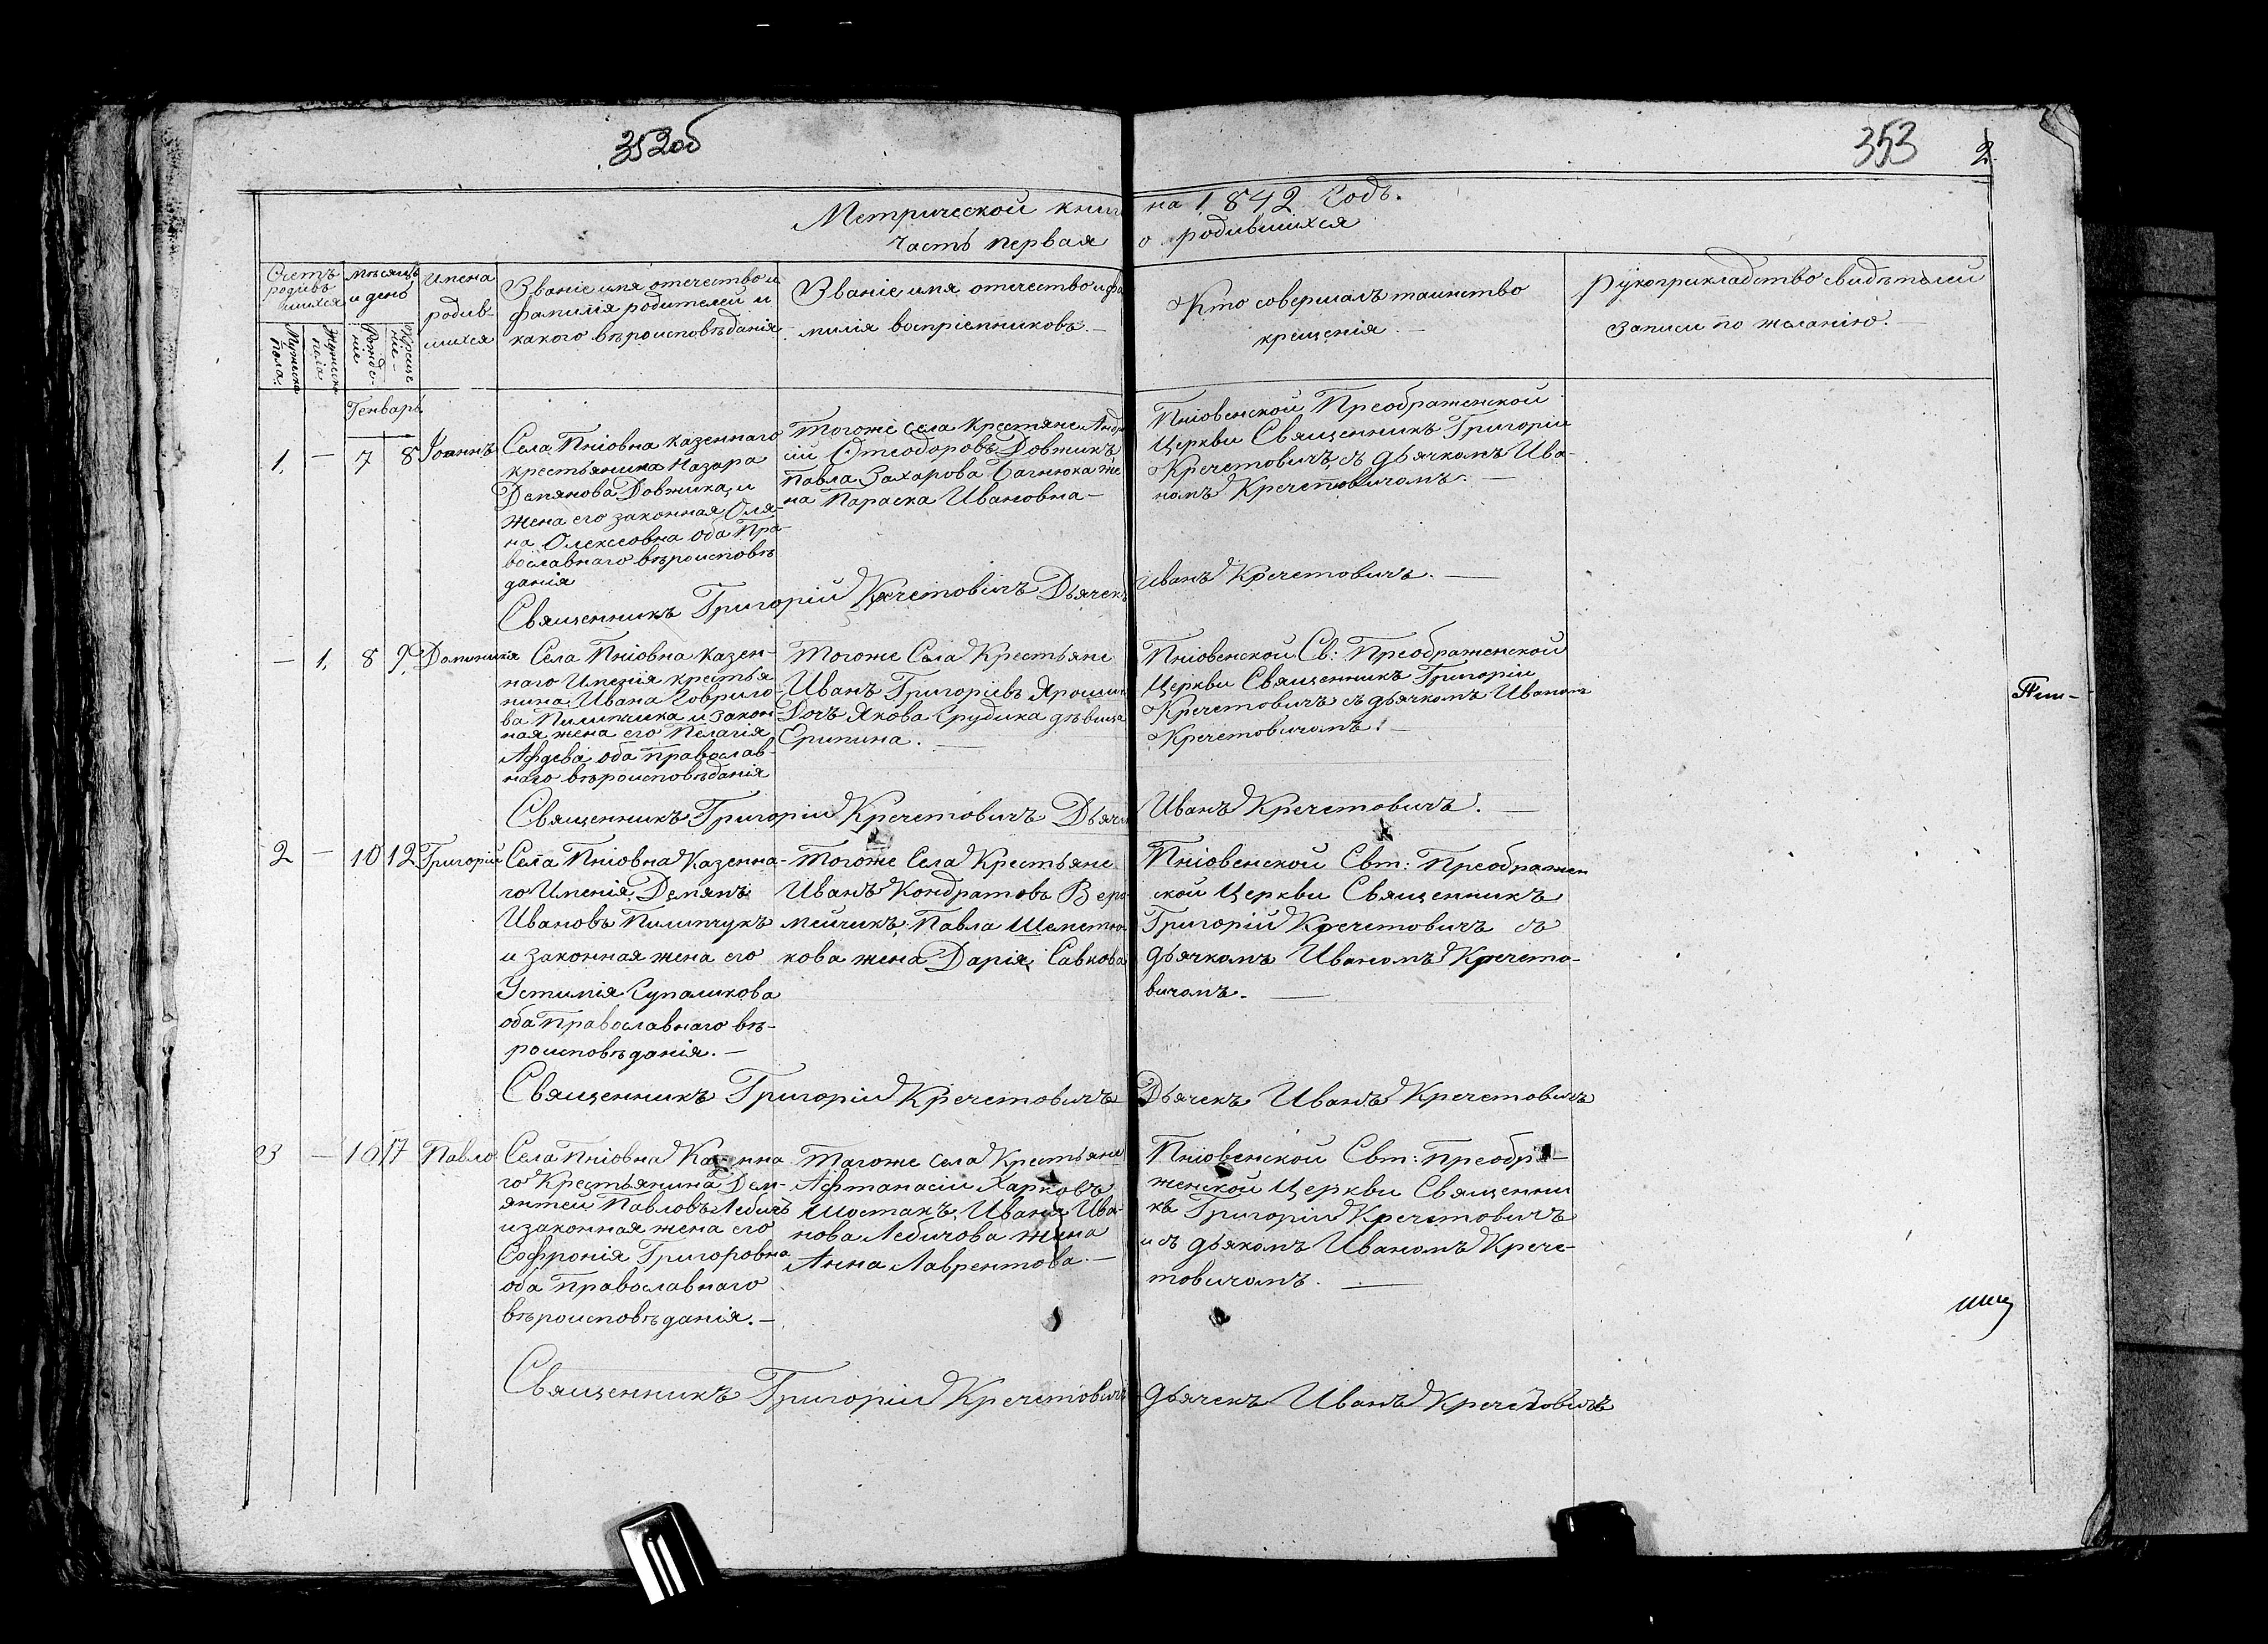 352об
353
2.
Метрической книг на 1842 Годъ.
часть первая о родившихся
Счетъ родив шихся
Мѣсяцъ и день
Имена родив- шихся
Званіе имя отечество и фамилія родителей и какого вѣроисповѣданія
Званіе имя отечество и фа милія воспріемниковъ.—
Кто совершалъ таинство крещенія.—
Рукоприкладство свидѣтелей записи по желанію.—
Мужска пола.
Женска пола
Рожде- ніе
Креще ніе-
Генварь
1. — 7 8 Іоаннъ
Села Пніовна казеннаго
крестьянина Назара
Демянова Довжика, и
жена его законная Оля-
на Олексеовна оба Пра-
вославнаго вѣроисповѣ
данія
Тогоже села Крестяне Андр
ій Отеодоровъ Довжикъ
Павла Захарова Багнюка же
на Параска Ивановна —
Пніовенской Преображенской
Церкви Священникъ Григорій
Кречетовичъ съ дьячкомъ Ива-
номъ Кречетовичомъ. —
Священникъ Григорій Кречетовичъ Дьячекъ Иванъ Кречетовичъ. —
— 1. 8 9. Доминикія
Села Пніовна Казен-
наго Именія крестья
нина Ивана Говрило-
ва Пилипчика и закон
ная жена его Пелагія
оба православ-
наго вѣроисповѣданія
Тогоже Села Крестьяне
Иванъ Григоріевъ
Дочъ Якова Грудика дѣвица
Ерипина. —
Пніовенской Св: Преображенской
Церкви Священникъ Григорій
Кречетовичъ съ дьячкомъ Иваномъ
Кречетовичомъ. —
Священникъ Григорій Кречетовичъ Дьячк Иванъ Кречетовичъ. —
2 — 10 12 Григорій
Села Пніовна Казенна-
го Именія Демянъ
Ивановъ Пилипчукъ
и законная жена его
Устимія Супаликова
оба Православнаго вѣ-
роисповѣданія. —
Тогоже Села Крестьяне
Иванъ Кондратовъ Вере-
мейчикъ, Павла
кова жена Дарія Савкова
Пніовенской Свт: Преображен
ской Церкви Священникъ
Григорій Кречетовичъ съ
дьячкомъ Иваномъ Кречето-
вичомъ. —
Священникъ Григорій Кречетовичъ Дьячекъ Иванъ Кречетовичъ
3 — 16 17 Павло
Села Пніовна Казенна
го Крестьянина Дем-
янтей Павловъ Лебичъ
и законная жена его
Софронія Григоровна
оба Православнаго
вѣроисповѣданія. —
Тагоже Села Крестьяне
Афтанасіи Харковъ
Шостакъ, Ивана Ива-
нова Лебичова жена
Анна Лаврентова. —
Пніовенской Свт: Преобра-
женской Церкви Священни
къ Григорій Кречетовичъ
и съ дьякомъ Иваномъ Крече-
товичомъ. —
Священникъ Григорій Кречетовичъ дьячекъ Иванъ Кречетовичъ